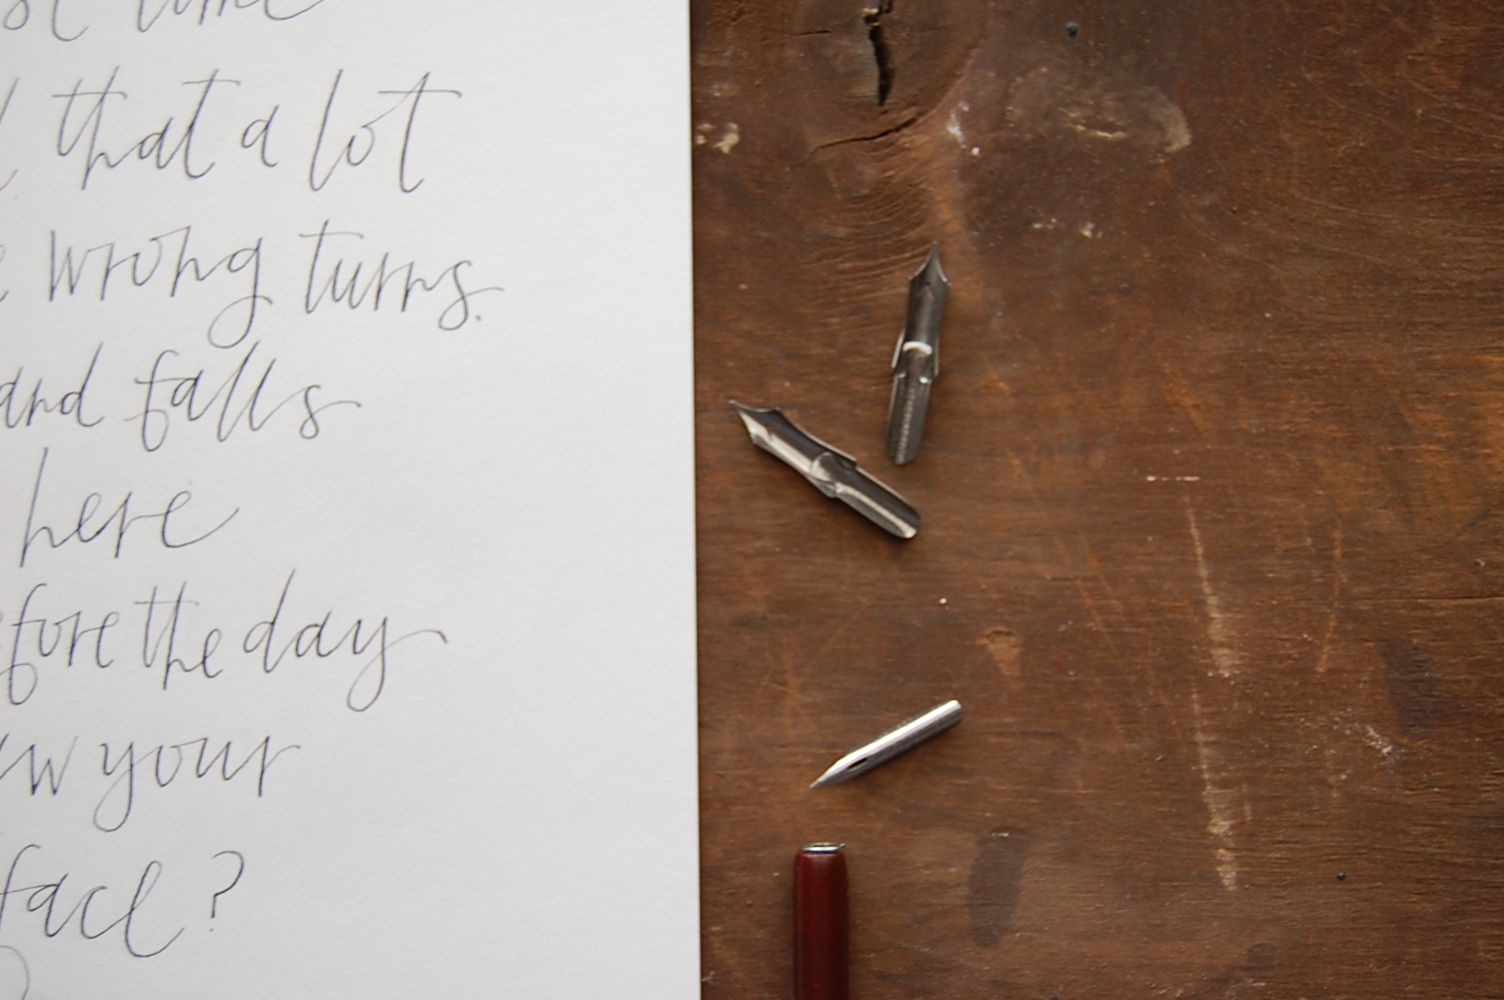 that a lot
wrong turns.
and falls
here
the day
your
face?